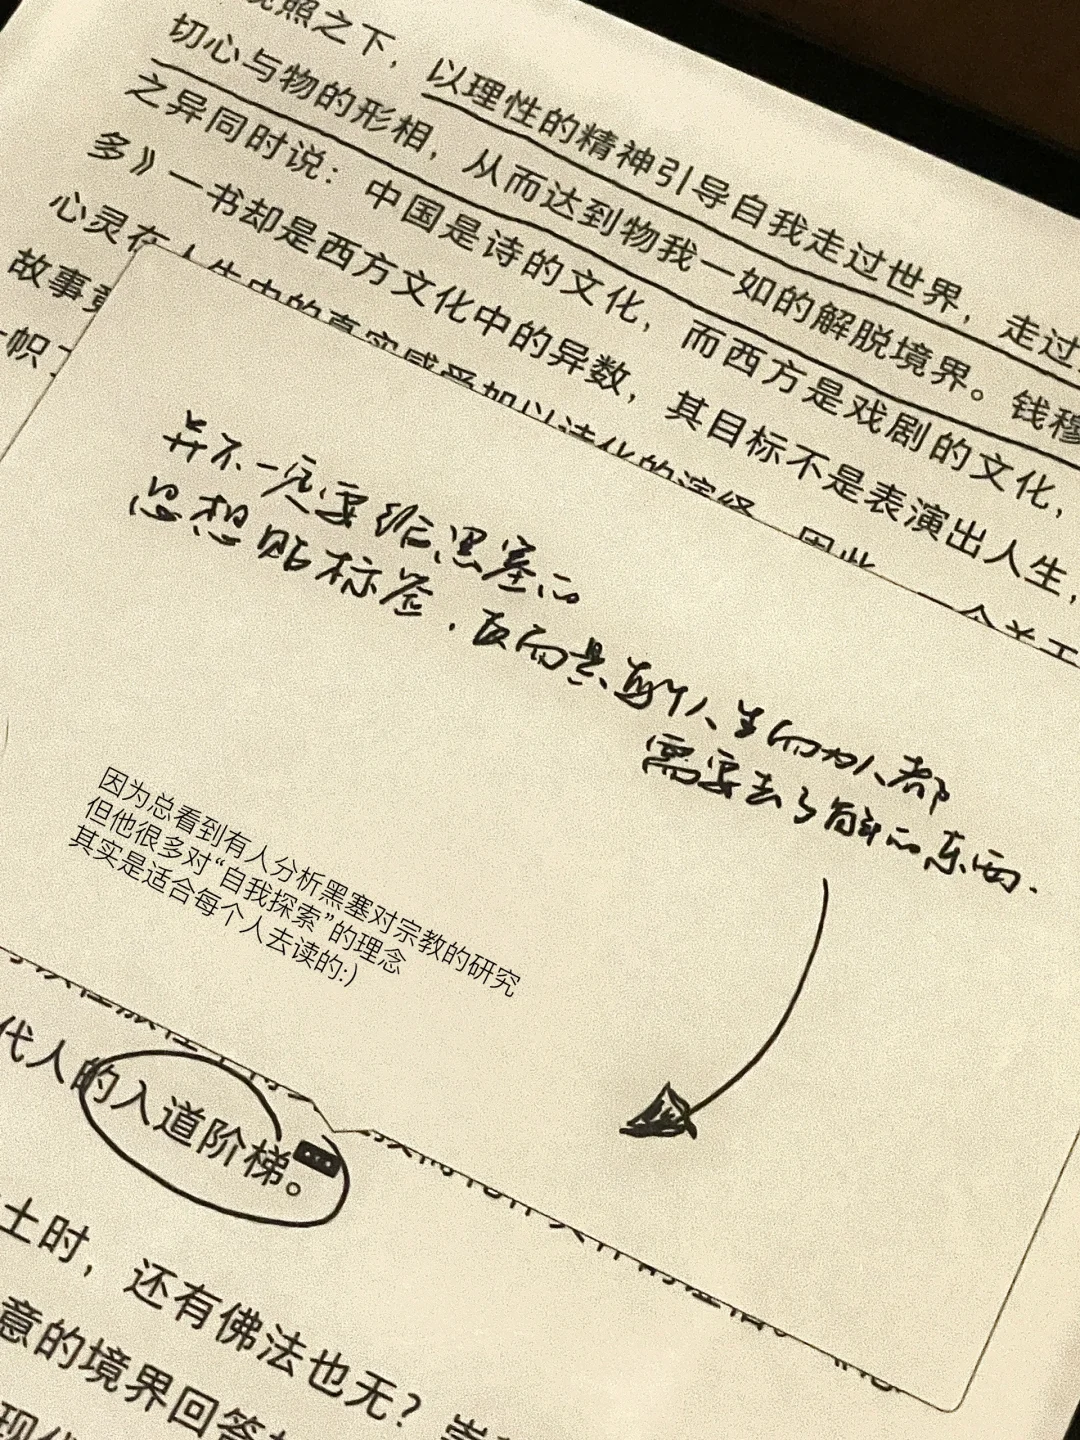 观照之下，以理性的精神引导自我走过世界，走过
切心与物的形相，从而达到物我一如的解脱境界。钱穆
之异同时说：中国是诗的文化，而西方是戏剧的文化，
多》一书却是西方文化中的异数，其目标不是表演出人生，
心灵在人生中的真实感受加以诗化的演绎。因此，一个关于
故事
一帜
并不一定要给黑塞的
思想贴标签，反而是每个人生而为人都
需要去了解的东西.
因为总看到有人分析黑塞对宗教的研究
但他很多对“自我探索”的理念
其实是适合每个人去读的:)
代人的入道阶梯。
土时，还有佛法也无？
意的境界回答
现代